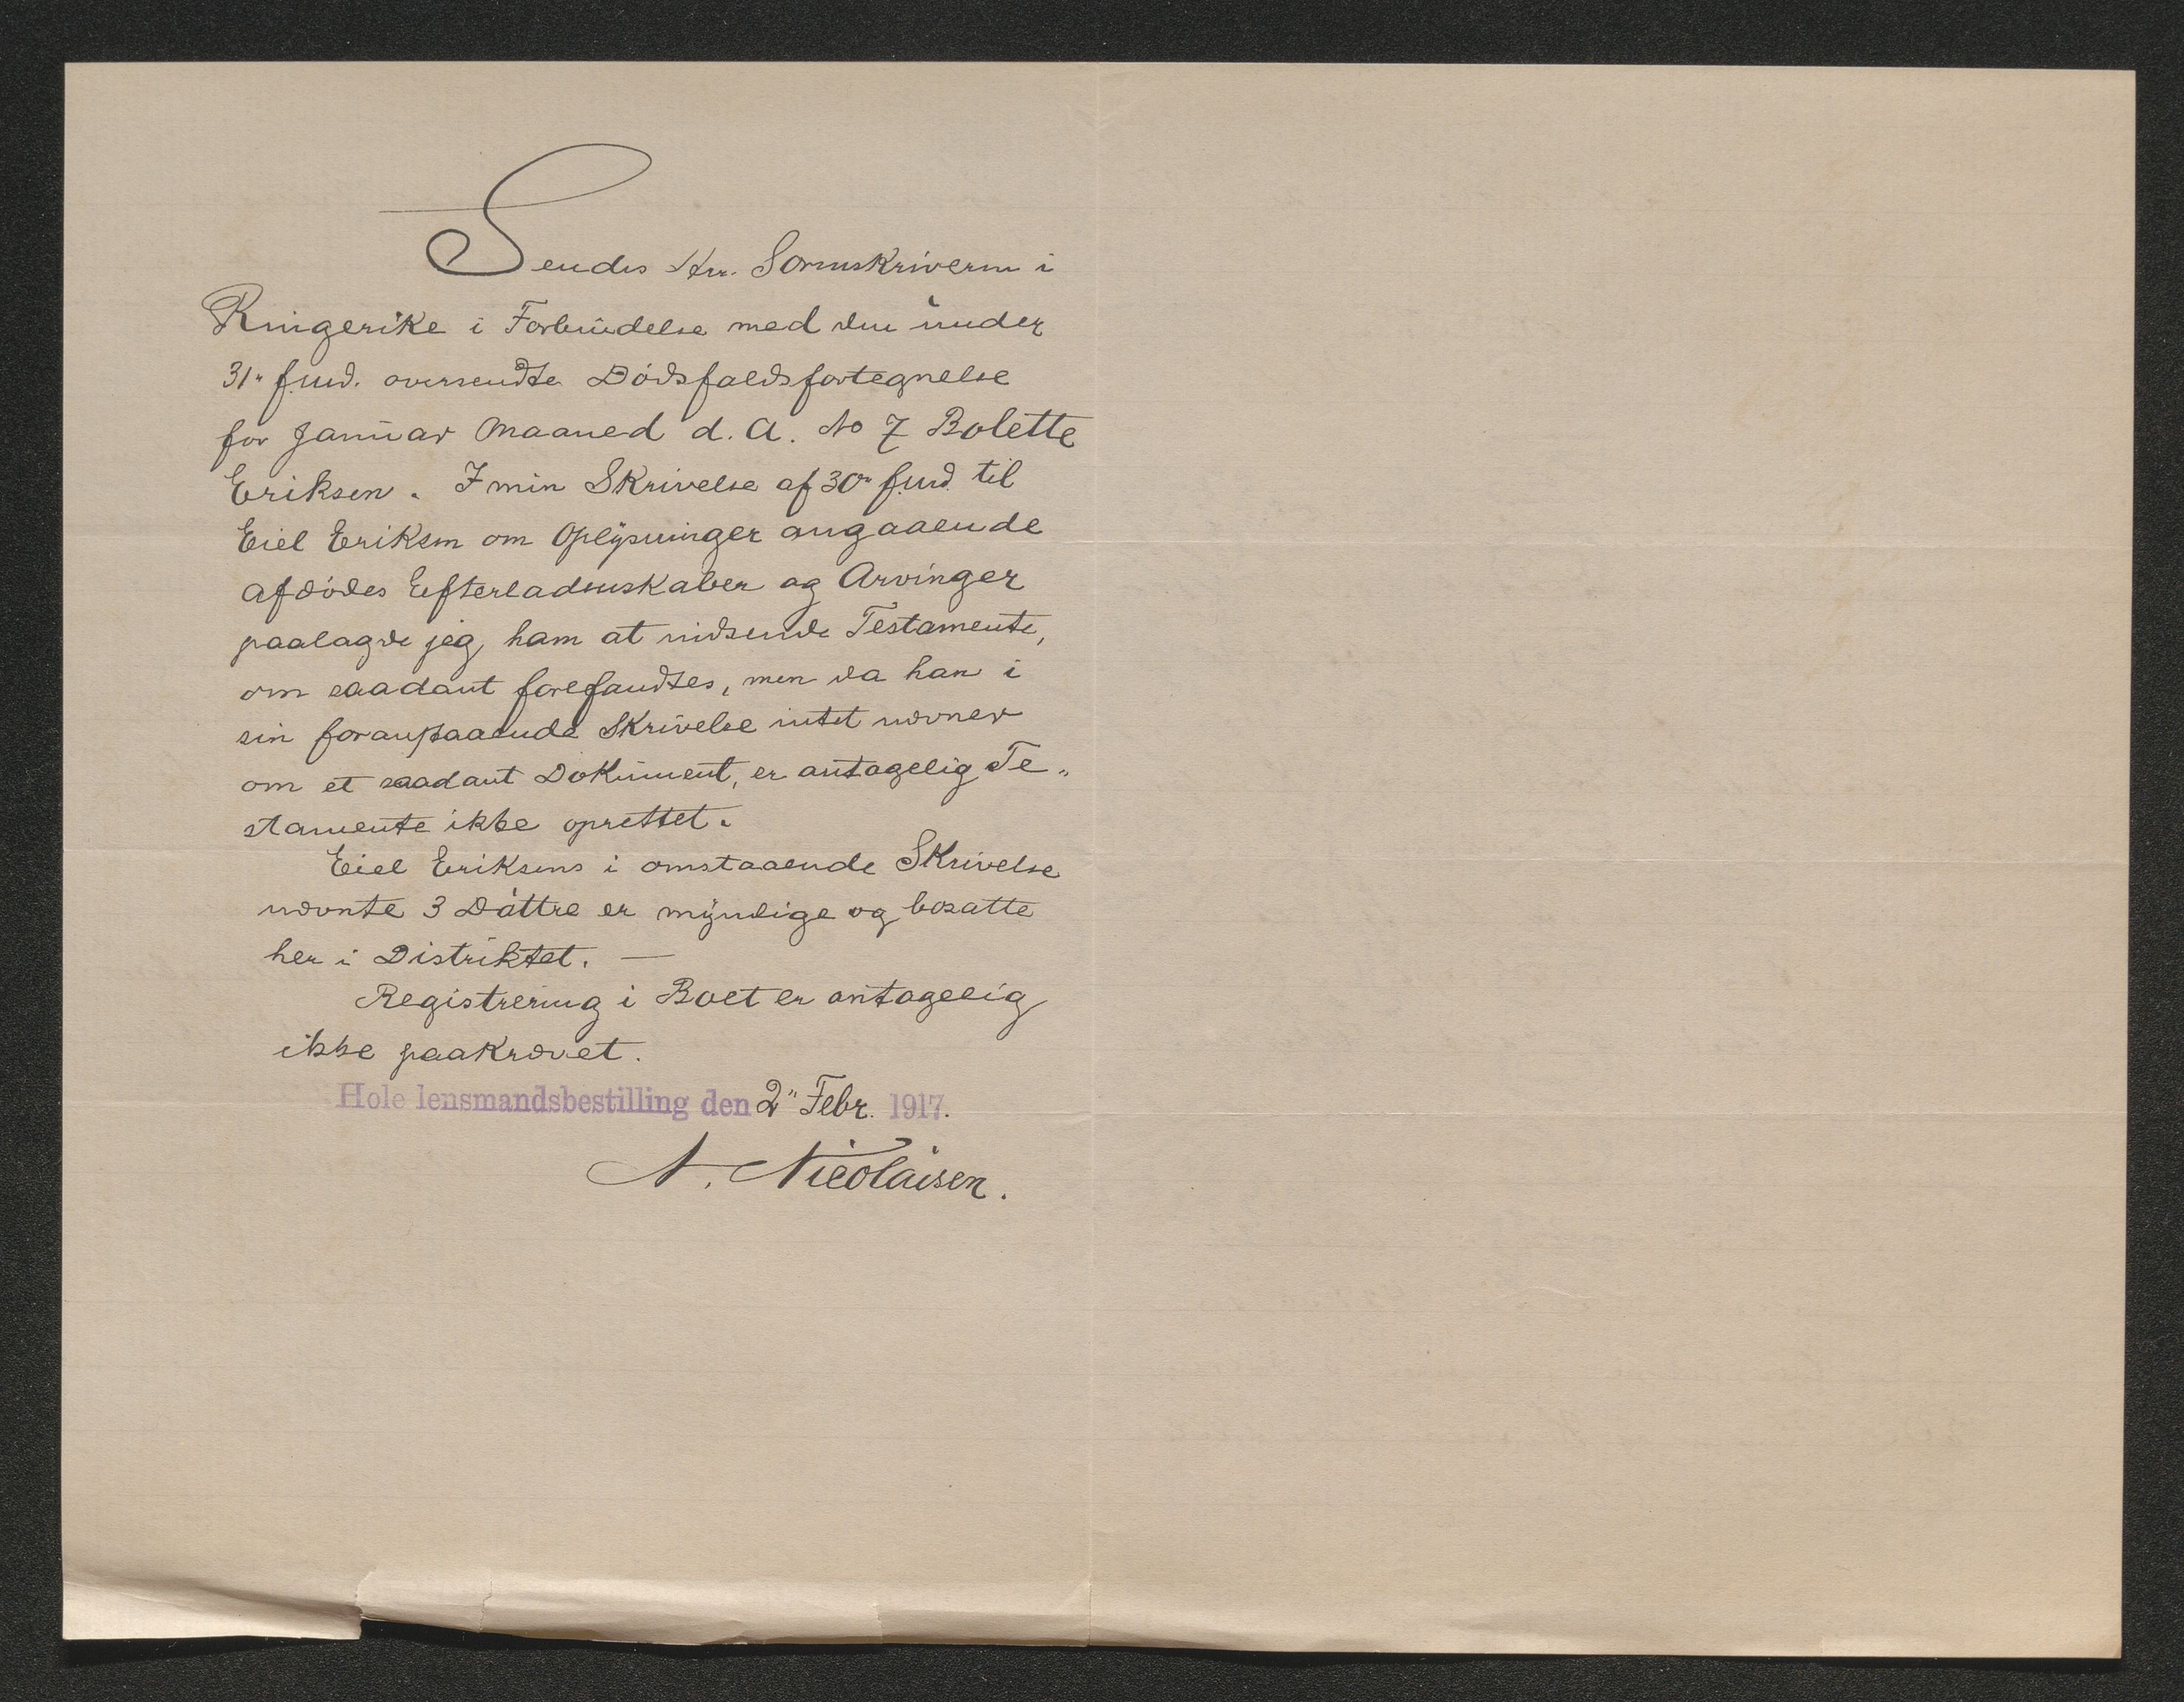 Sendes Hr. Sorenskriveren i
Ringerike i Forbindelse med den under
31" f.md. oversendte Dödsfaldsfortegnelse
for Januar Maaned d. A. No 7 Bolette
Eriksen. I min Skrivelse af 30" f.md til
Eiel Eriksen om Oplysninger angaaende
afdödes Efterladenskaber og Arvinger
paalagde jeg ham at indsende Testamente,
om saadant forefandtes, men da han i
sin foranstaaende Skrivelse intet nævner
om et saadant Dokument, er antagelig Te„
stamente ikke oprettet.
Eiel Eriksens i omstaaende Skrivelse
nævnte 3 Döttre er myndige og bosatte
her i Distriktet. —
Registrering i Boet er antagelig
ikke paakrævet.
Hole lensmandsbestilling den 2" Febr. 1917.
N. Nicolaisen.